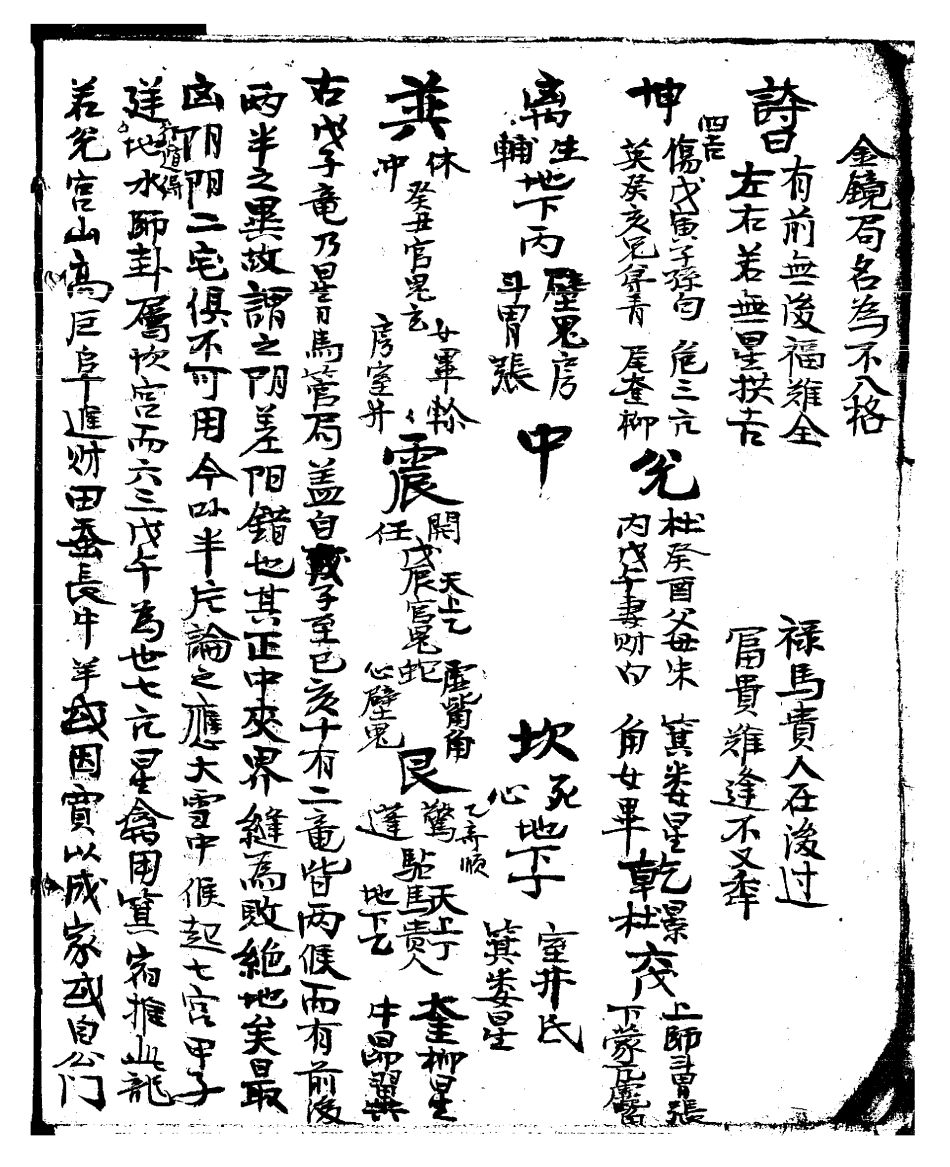 金鏡局名為不入格
詩曰
有前無後福难全
左右若無星拱吉
禄馬貴人在後过
富貴难逢不又乖
坤
四吉
傷戊寅子孫勾
英癸亥兄弟青
危三亢
尾奎柳
兌
杜癸酉父母朱
丙戊午妻财白
箕娄星
角女畢
乾
景
杜
上師斗胃張
下蒙亢虛觜
离
生
輔
地下丙
壁鬼房
斗胃張
中
坎
死
心
地下丁
室井氐
箕娄星
巽
休
冲
癸丑官鬼玄
女畢軫
房室井
震
開
任
戊辰官鬼蛇
天上乙
虛觜角
心壁鬼
艮
驚
蓬
乙奇順
天上丁
馬貴人
地下乙
奎柳星
牛昴翼
右戊子竜乃 馬管局盖自 子至己亥十有二竜皆两候而有前後
两半之異故謂之阴差阳錯也其正中夾界縫為敗絶地矣最
凶阴阳二宅俱不可用今以半片論之應大雪中候起七宫甲子
遅地水師卦屬坎宫而六三戊午為世七亢星禽用箕宿推此龍
若兌宫山高巨阜進财田蚕長牛羊或因賣以成家或自公门